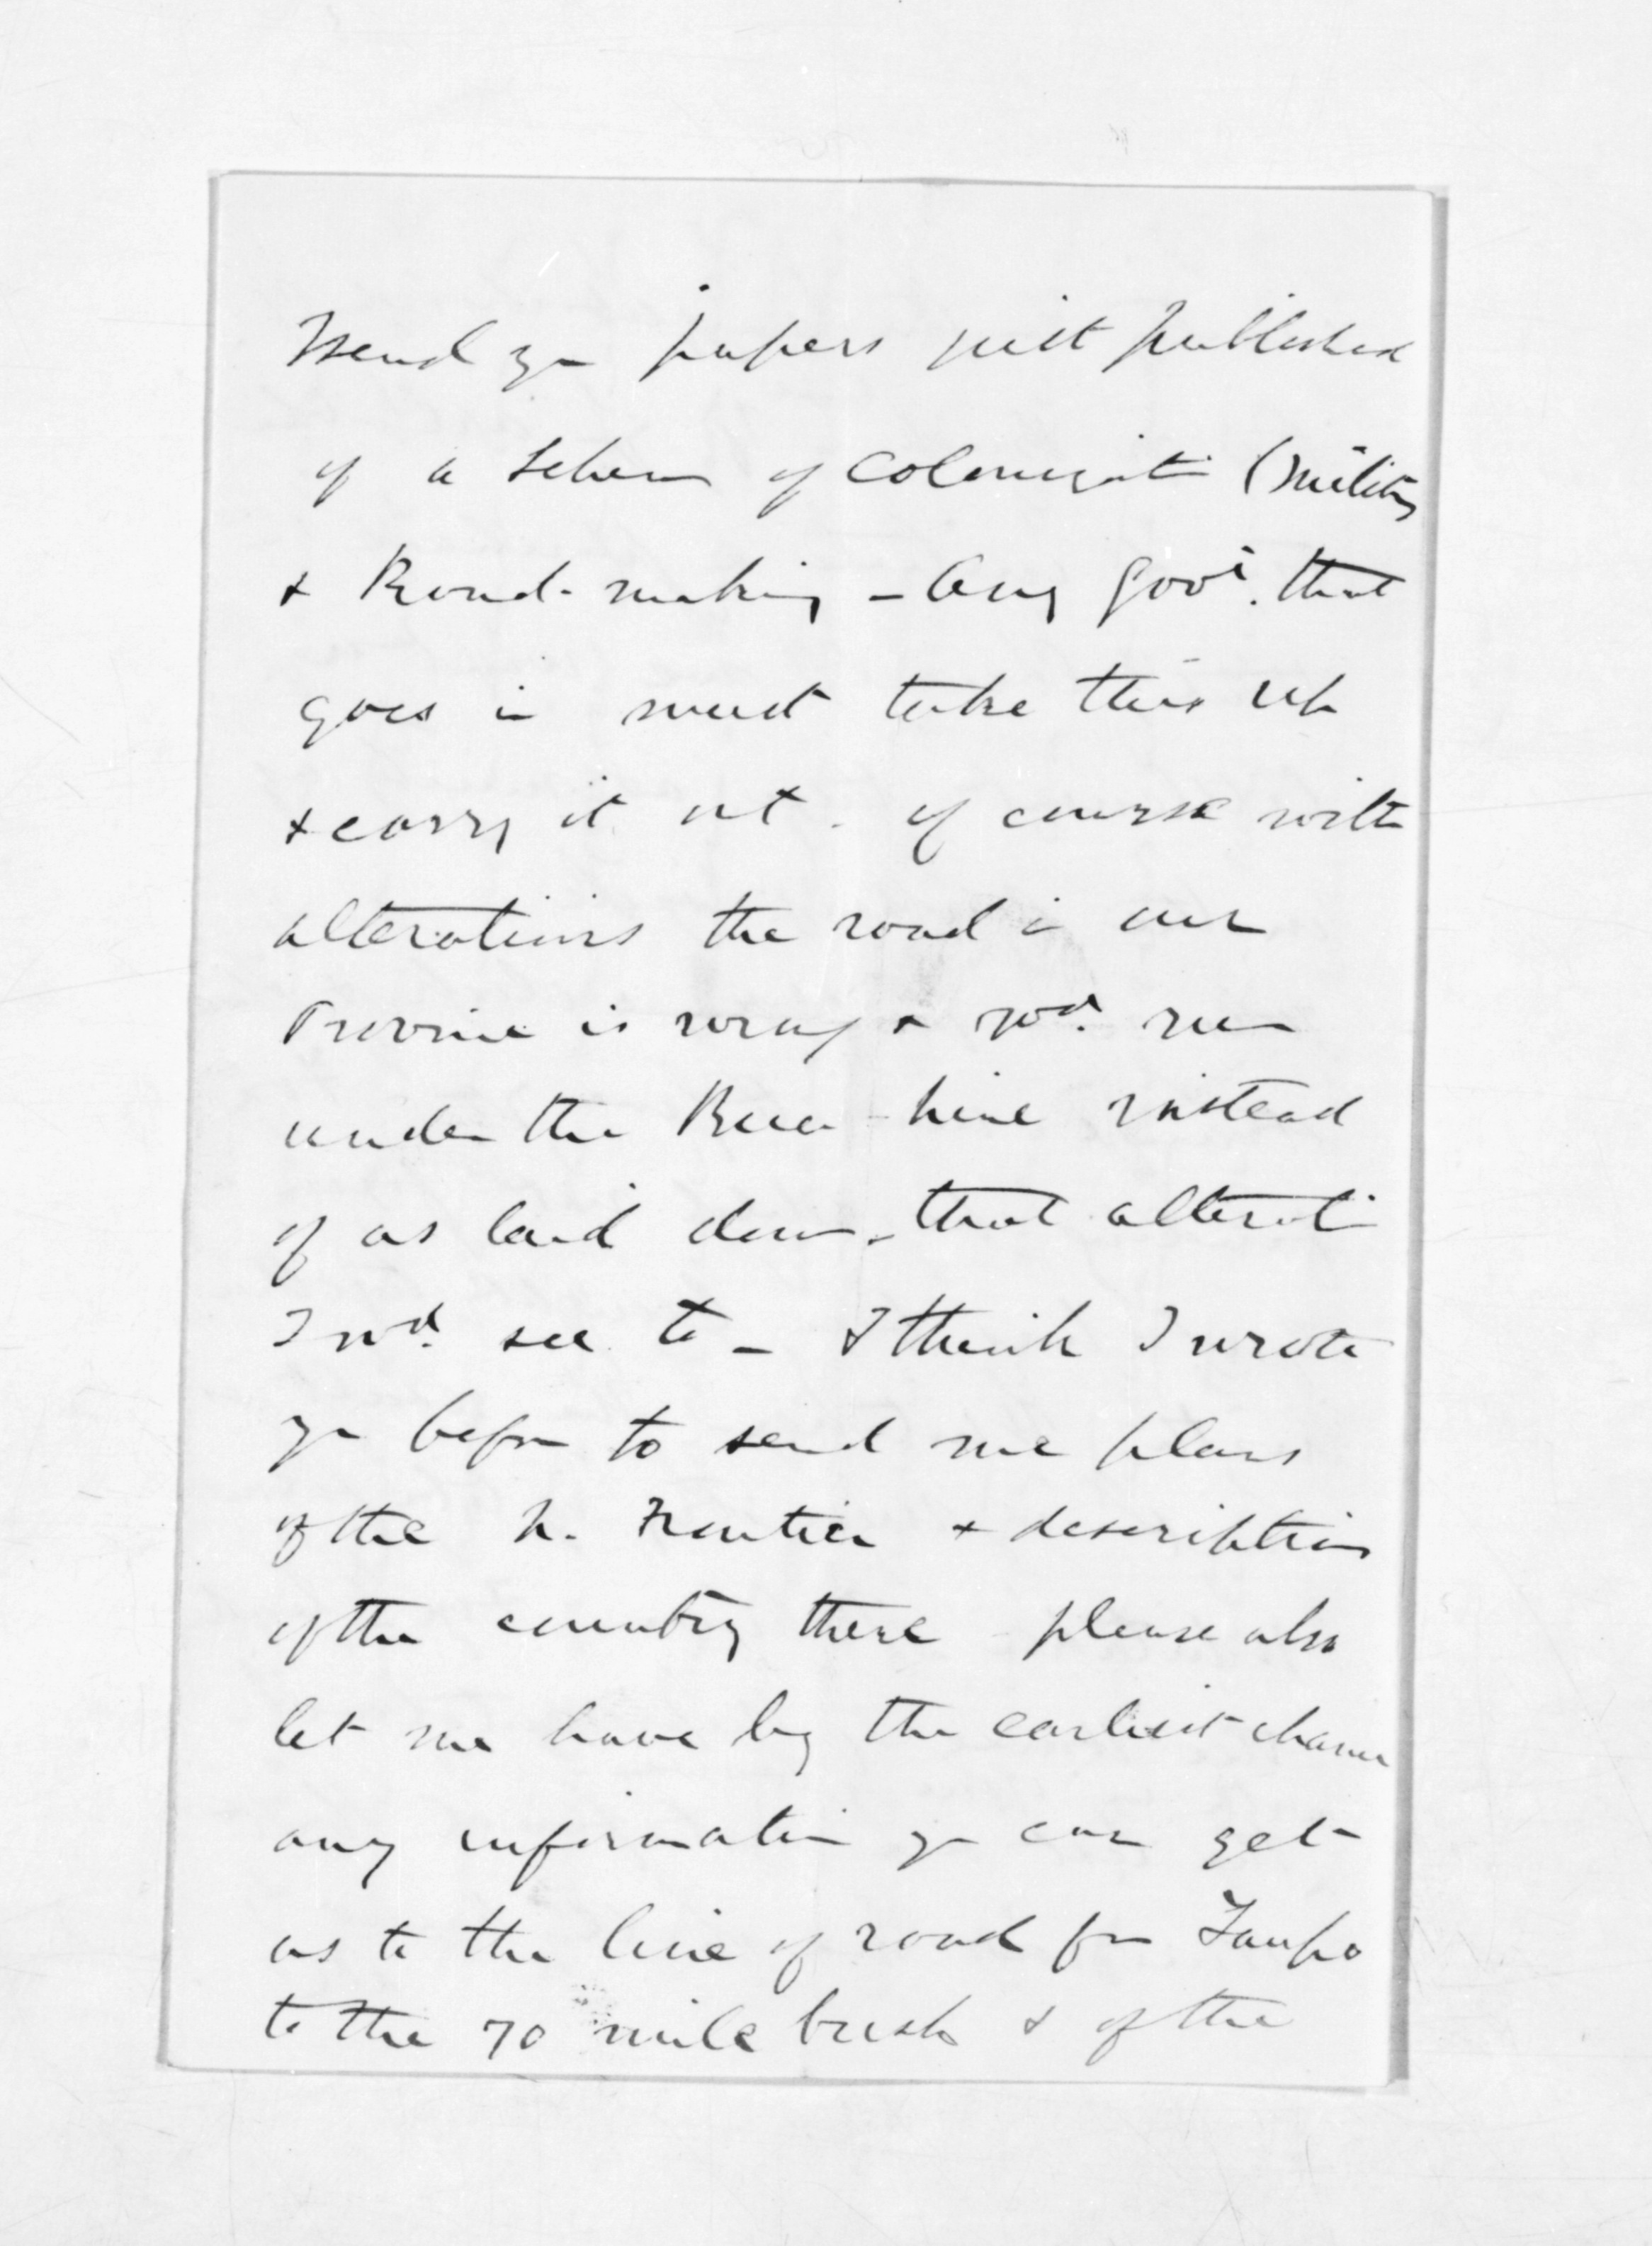 I send you papers just published
of a scheme of Colonization (Military
& Road-making - Any Govt. that
goes in must take this up
& carry it out. of course with
alterations the road in our
Province is wrong & wod. run
under the Rua-hine instead
of as laid down - that alteration
I wd. see to - I think I wrote
you before to send me plans
of the N. Frontier & description
of the country there please also
let me have by the earliest chance
any information you can get
as to the line of road from Taupo
to the 70 mile bush & of the